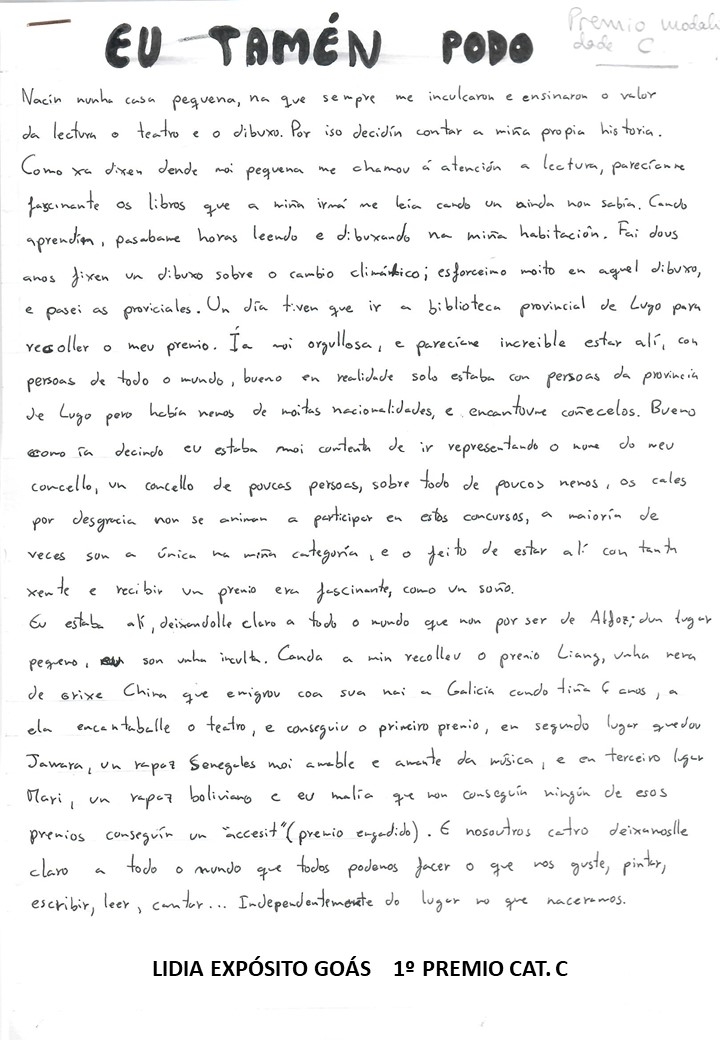 Premio modali
dade C
EU TAMÉN PODO
Nacín nunha casa pequena, na que sempre me inculcaron e ensinaron o valor
da lectura o teatro e o dibuxo. Por iso decidín contar a miña propia historia.
Como xa dixen dende moi pequena me chamou á atención a lectura, parecíanme
fascinante os libros que a miña irmá me leía cando un ainda non sabía. Cando
aprendín, pasabame horas leendo e dibuxando na miña habitación. Fai dous
anos fixen un dibuxo sobre o cambio climático; esforceimo moito en aquel dibuxo,
e pasei as proviciales. Un día tiven que ir a biblioteca provincial de Lugo para
recoller o meu premio. Ía moi orgullosa, e pareciame increible estar alí, con
persoas de todo o mundo, bueno en realidade solo estaba con persoas da provincia
de Lugo pero había nenos de moitas nacionalidades, e encantoume coñecelos. Bueno
como ía decindo eu estaba moi contenta de ir representando o nome do meu
concello, un concello de poucas persoas, sobre todo de poucos nenos, os cales
por desgracia non se animan a participar en estos concursos, a maioría de
veces son a única na miña categoría, e o feito de estar alí con tanta
xente e recibir un premio era fascinante, como un soño.
Eu estaba alí, deixandolle claro a todo o mundo que non por ser de Alfoz; dun lugar
pequeno, son unha inculta. Canda a min recolleu o premio Liang, unha nena
de orixe China que emigrou coa sua nai a Galicia cando tiña 6 anos, a
ela encantaballe o teatro, e conseguiu o primeiro premio, en segundo lugar quedou
Jawara, un rapaz Senegales moi amable e amante da música, e en terceiro lugar
Mari, un rapaz boliviano e eu malia que non conseguín ningún de esos
premios conseguín un "accesit" (premio engadido). E nosoutros catro deixamoslle
claro a todo o mundo que todos podemos facer o que nos guste, pintar,
escribir, leer, cantar... Independentemente do lugar no que naceramos.
LIDIA EXPÓSITO GOÁS 1º PREMIO CAT. C